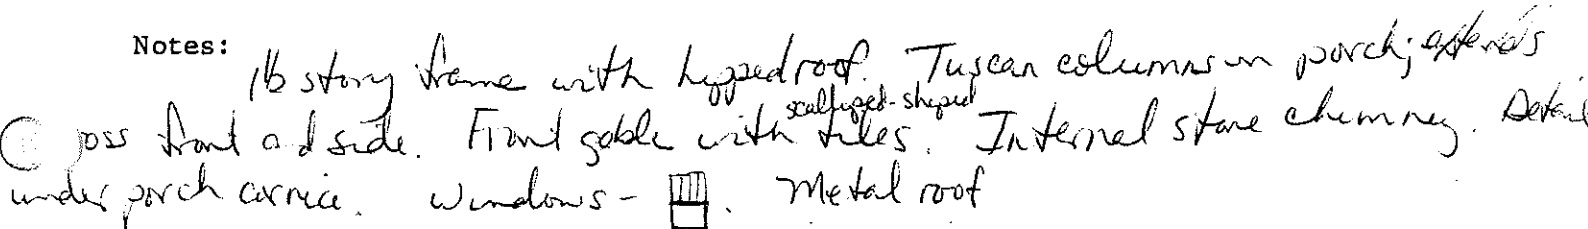 Notes:
story frame with hipped roof. Tuscan columns on porch; extends
scalloped-shaped
front and side. Front gable with tiles. Internal stone chimney. Detail
under porch cornice. Windows - . Metal roof